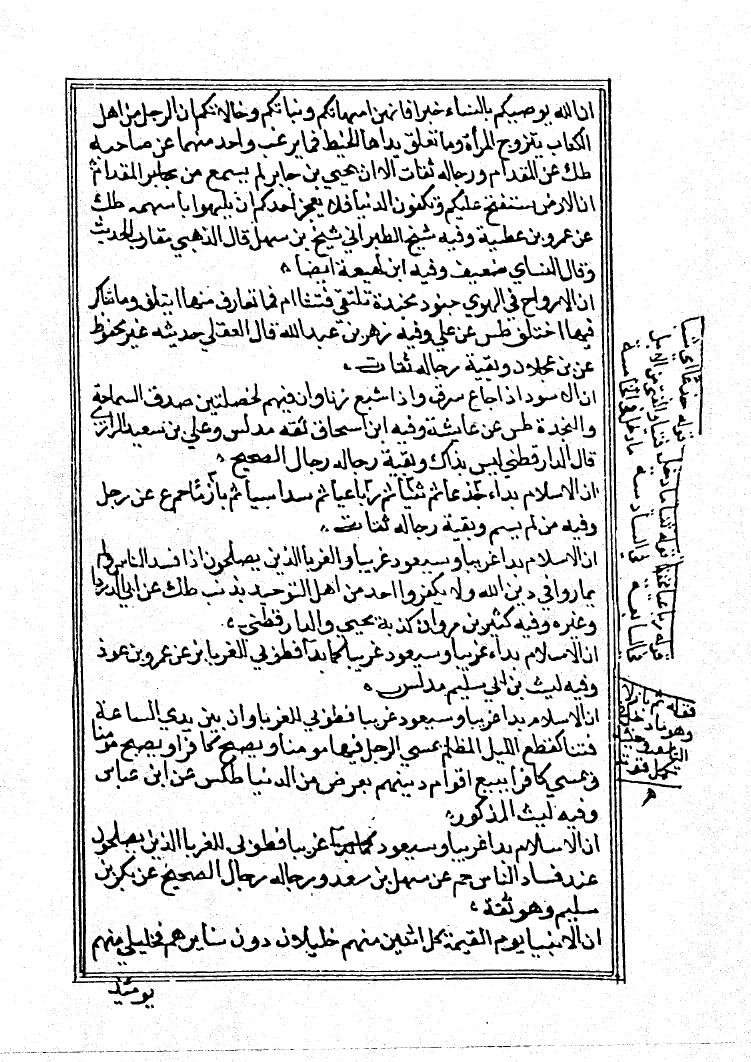 ان الله يوصيكم بالنساء خيرا فانهن امهاتكم وبناتكم وخالاتكم ان الرجل من اهل
الكتاب يتزوج المرأة وما تعلق يداها الخيط فما يرغب واحد منهما عن صاحبه
طك عن المقدام ورجاله ثقات الا ان يحيي بن جابر لم يسمع من المقدام
ان الارض ستفتح عليكم وتكفون الدنيا فلا يعجز احدكم ان يلهوا باسهمه طك
عن عمرو بن عطية وفيه شيخ الطبراني شيخ بن سهل قال الذهبي مقارب الحديث
وقال النساي ضعيف وفيه ابن لهيعة ايضا
ان الارواح في الهوي جنود مجندة تلتقي فتشاام فما تعارف منها ايتلف وما تناكر
فيها اختلف طس عن علي وفيه زهر بن عبد الله قال العقيلي حديثه غير محفوظ
عن بن عجلان وبقية رجاله ثقات
ان الاسود اذا جاع سرق واذا شبع زنا وان فيهم لخصلتين صدق السماحة
والنجدة طس عن عايشة وفيه ابن اسحاق ثقه مدلس وعلي بن سعيد الرازي
قال الدارقطني ليس بذاك وبقية رجاله رجال الصحيح
ان الاسلام بداء جذعا ثم ثنيا ثم رباعيا ثم سداسيا ثم بازلا حم ع عن رجل
وفيه من لم يسم وبقية رجاله ثقات
ان الاسلام بدا غريبا وسيعود غريبا والغربا الذين يصلحون اذا فسد الناس ولم
يماروا في دين الله ولا يكفروا احد من اهل التوحيد بذنب طك عن ابي الدردا
وغيره وفيه كثير بن مروان كذبه يحيي والدارقطني
ان الاسلام بداء غريبا وسيعود غريبا كما بدا فطوبي للغربا بز عن عمرو بن عوف
وفيه ليث بن ابي سليم مدلس
ان الاسلام بدا غريبا وسيعود غريبا فطوبي للغربا وان بين يدي الساعة
فتنا كقطع الليل المظلم يمسي الرجل فيها مومنا ويصبح كافرا ويصبح مومنا
ويمسي كافرا يبيع اقوام دينهم بعرض من الدنيا طكس عن ابن عباس
وفيه ليث المذكور
ان الاسلام بدا غريبا وسيعود غريبا فطوبي للغربا الذين يصلحون
عند فساد الناس حم عن سهل بن سعد ورجاله رجال الصحيح عن بكر بن
سليم وهو ثقة
ان الانبيا يوم القيمة كل اثنين منهم خليلان دون سايرهم فخليلي منهم
يومئذ
قوله جذعا اي شابا
قوله ثنيا ما دخل